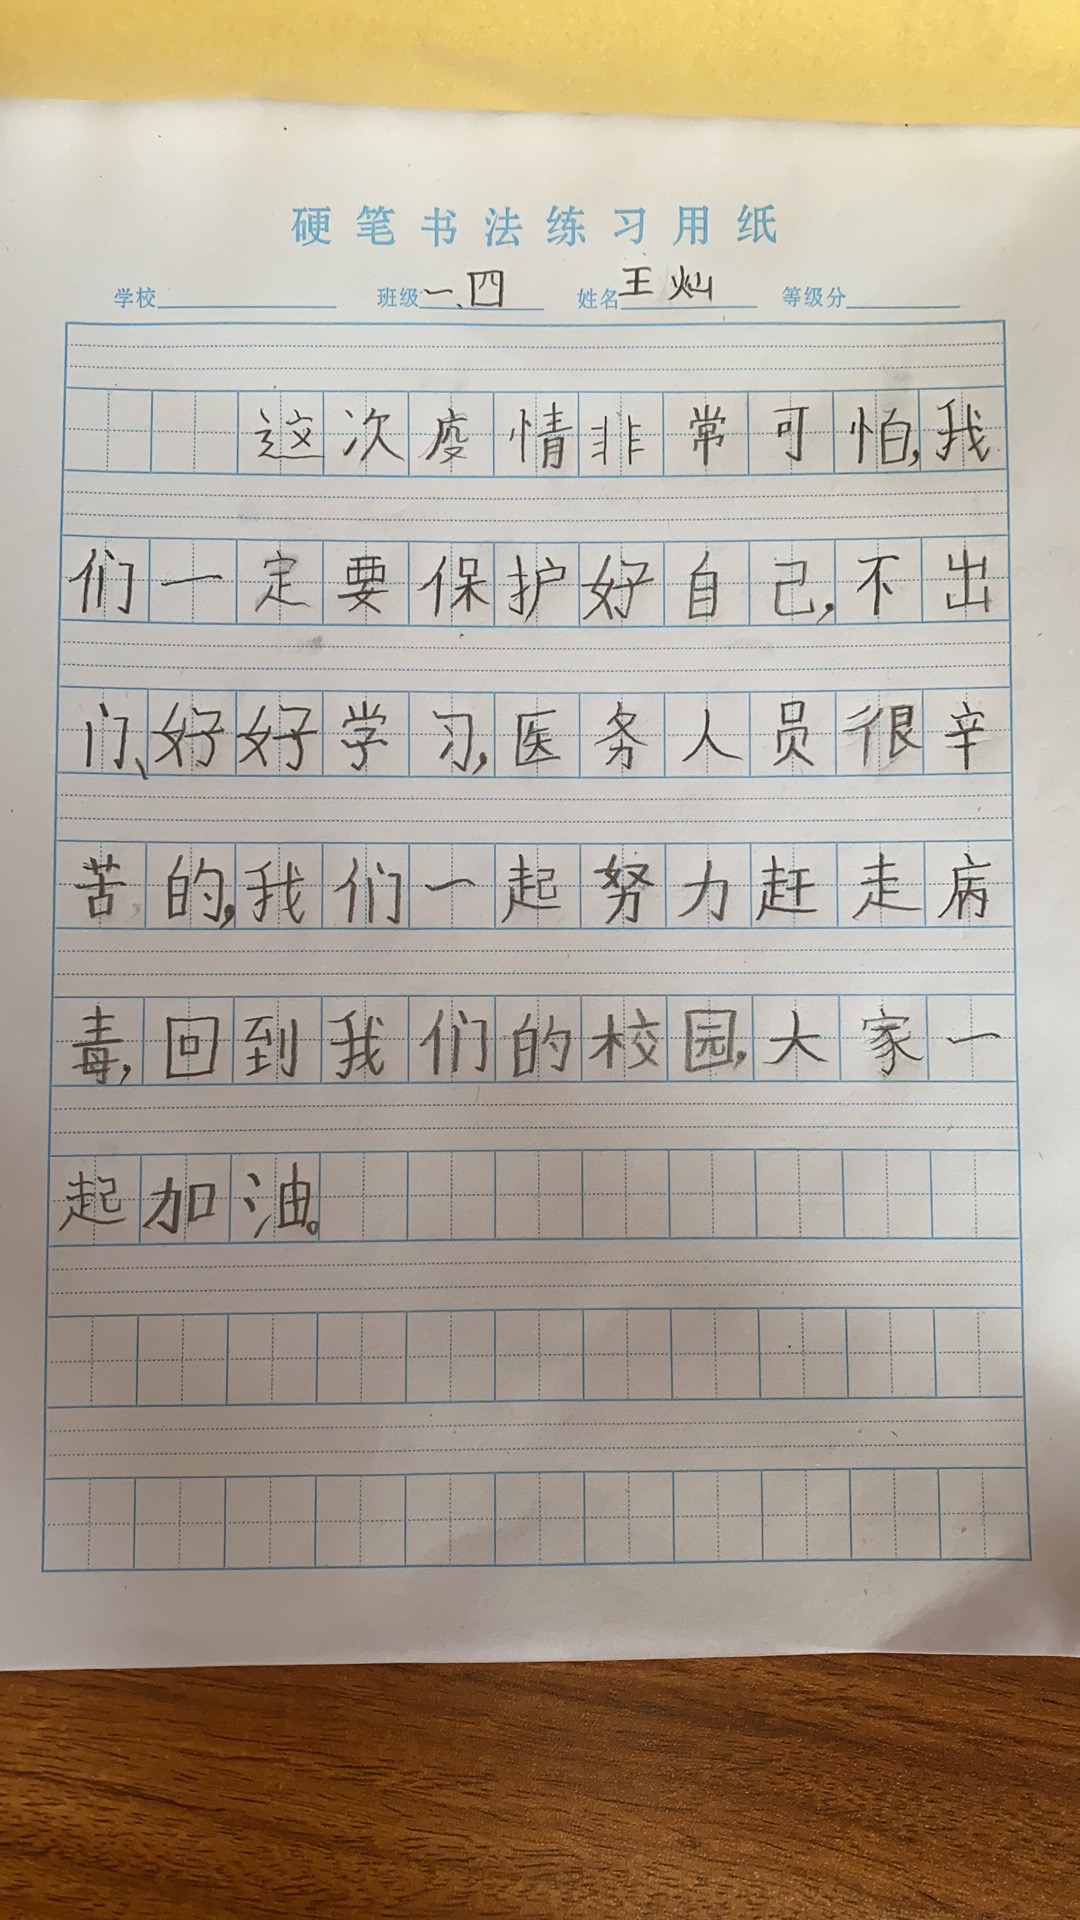 硬笔书法练习用纸
学校 班级 一、四 姓名 王灿 等级分
这次疫情非常可怕,我
们一定要保护好自己,不出
门、好好学习,医务人员很辛
苦的,我们一起努力赶走病
毒,回到我们的校园,大家一
起加油。